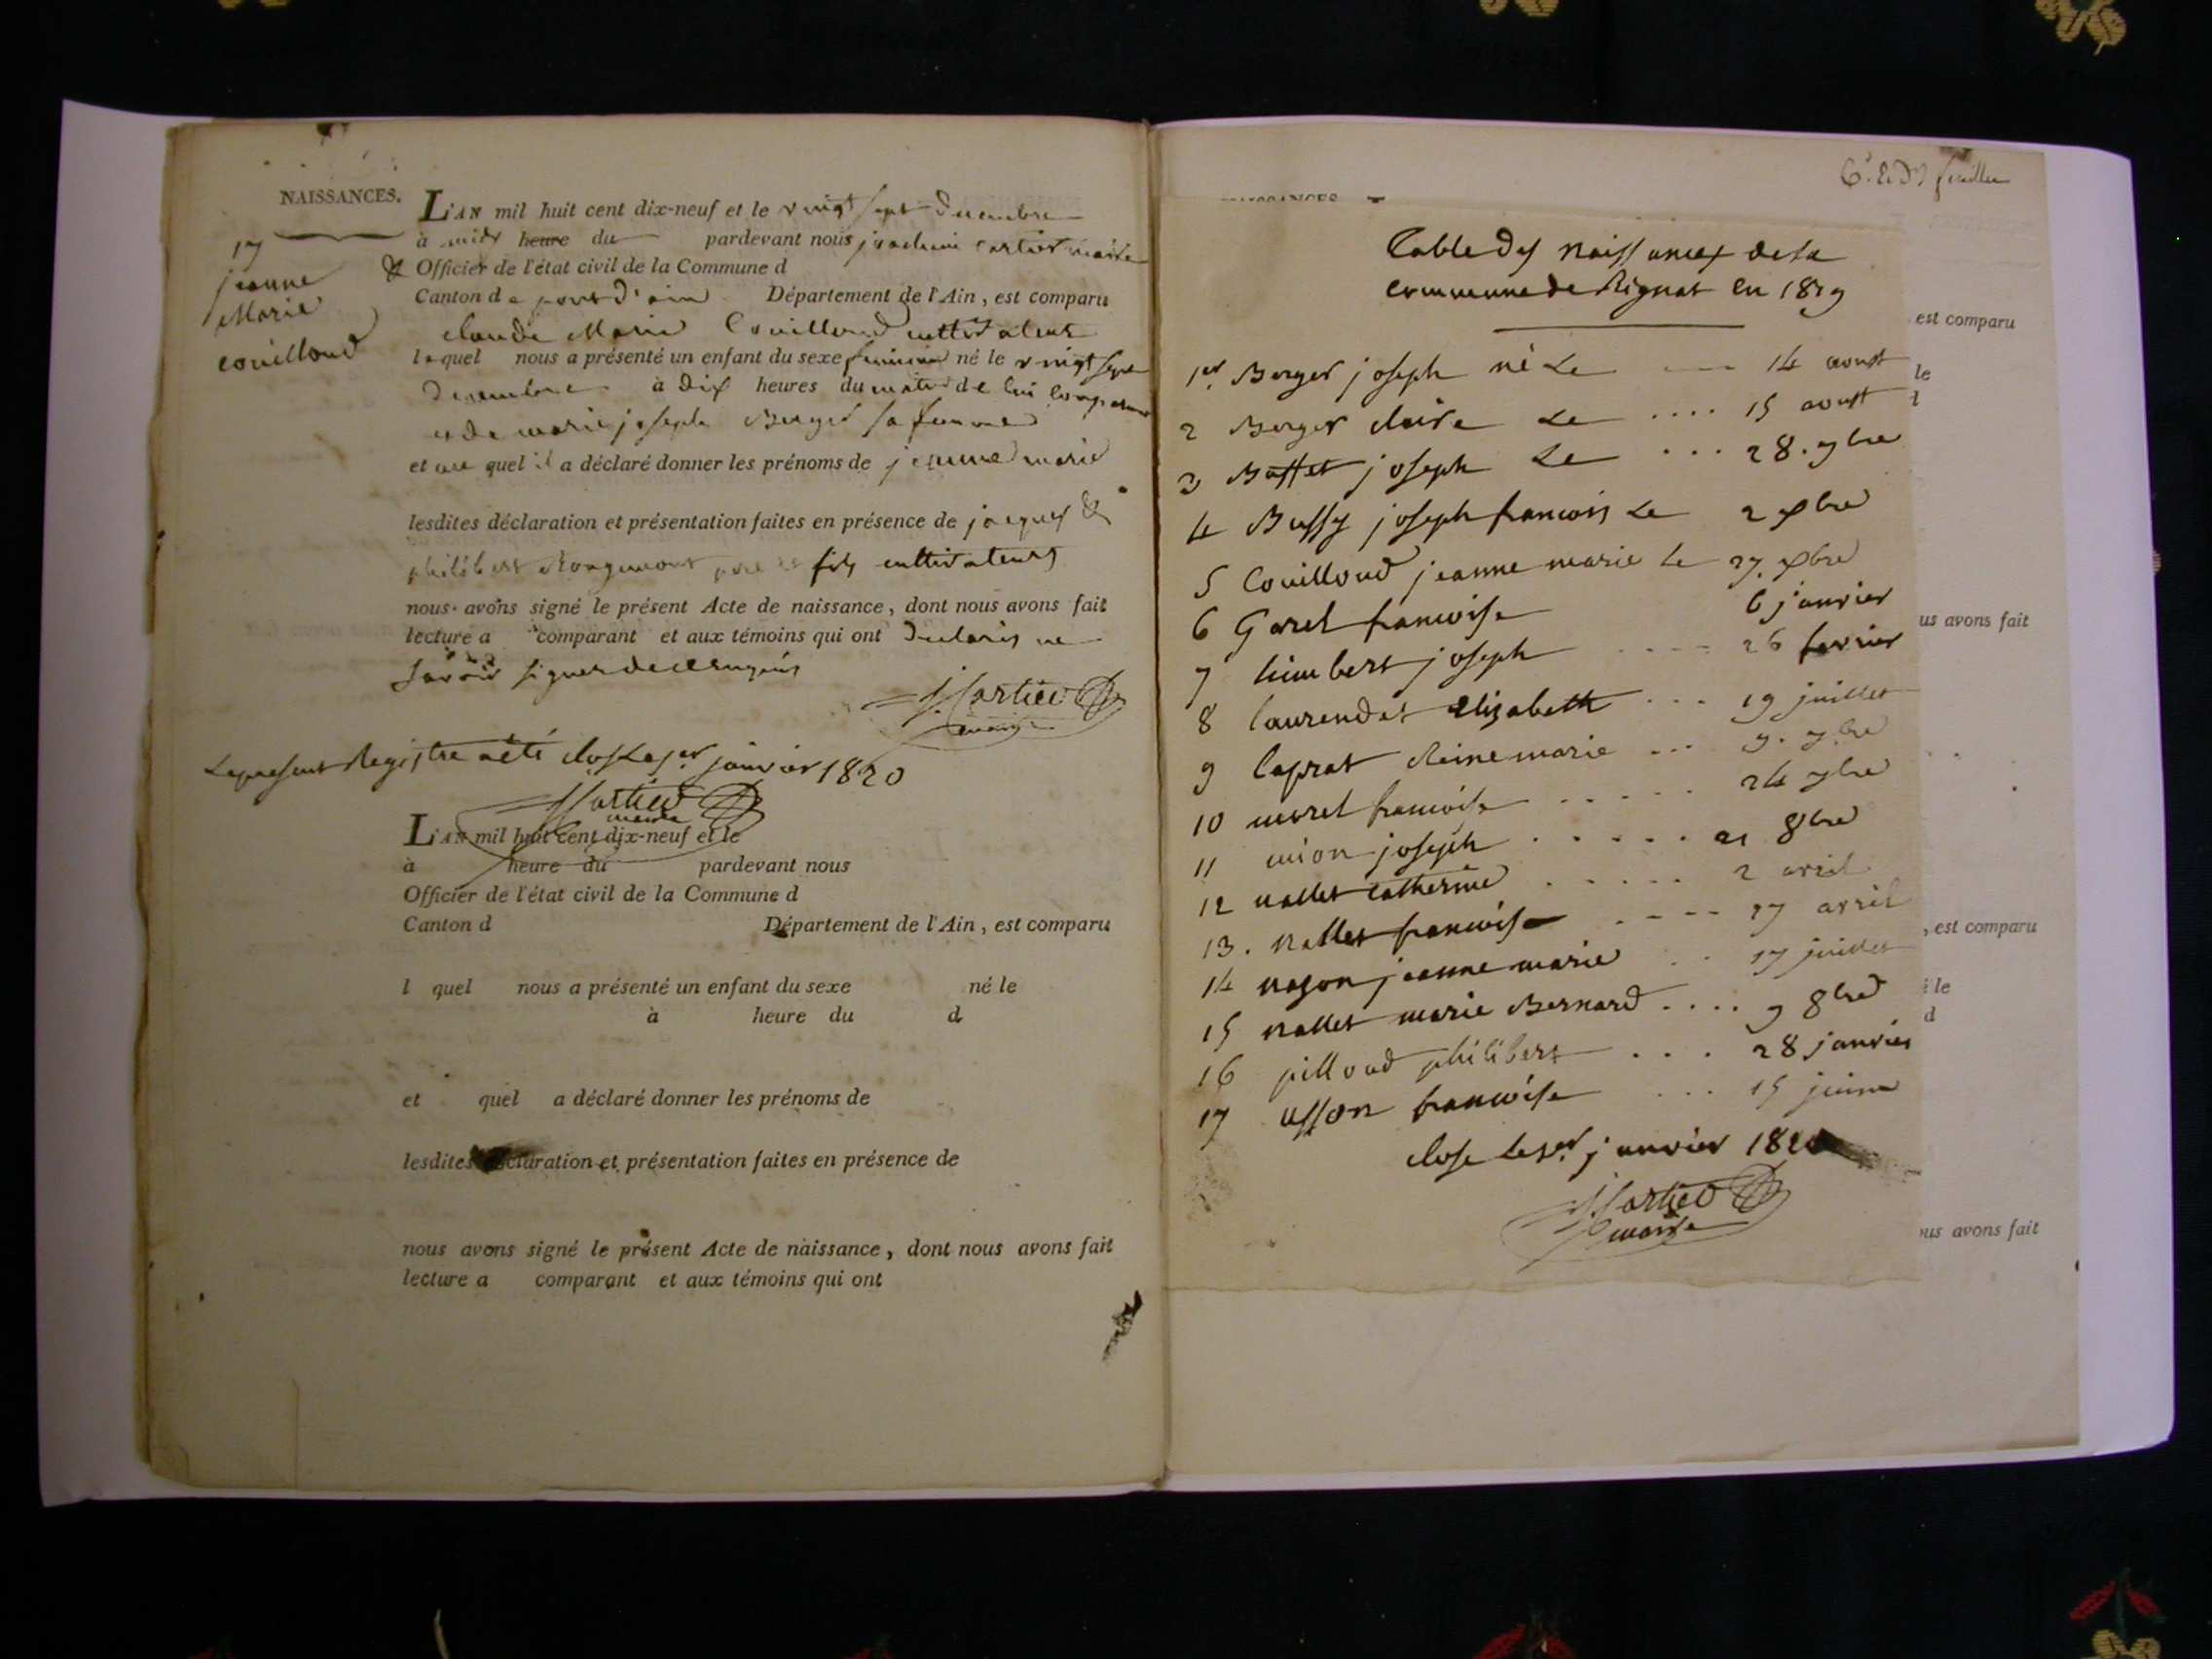 NAISSANCES.
17
jeanne
Marie
couilloud
L'AN mil huit cent dix-neuf et le vingt sept decembre
à midy heure du pardevant nous joachim cartier maire
& Officier de l'état civil de la Commune d
Canton de pont d'ain Département de l'Ain, est comparu
claude Marie Couilloud cultivateur
lequel nous a présenté un enfant du sexe feminin né le vingt sept
decembre à dix heures du matin de lui comparant
et de marie joseph Berger sa femme
et au quel il a déclaré donner les prénoms de jeanne marie
lesdites déclaration et présentation faites en présence de jacques &
philibert Rongemont pere et fils cultivateurs
nous avons signé le présent Acte de naissance, dont nous avons fait
lecture a comparant et aux témoins qui ont declarés ne
savoir signer de ce enquis
J. Cartier
maire
Le present Registre a été clos le 1er janvier 1820
J Cartier
maire
L'AN mil huit cent dix-neuf et le
à heure du pardevant nous
Officier de l'état civil de la Commune d
Canton d Département de l'Ain, est comparu
l quel nous a présenté un enfant du sexe né le
à heure du d
et quel a déclaré donner les prénoms de
lesdites déclaration et présentation faites en présence de
nous avons signé le présent Acte de naissance, dont nous avons fait
lecture a comparant et aux témoins qui ont
feuillet
NAISSANCES
Table des Naissances de la
commune de Rignat en 1819
1er Berger joseph né Le 14 aoust
2 Berger claire Le .... 15 aoust
3 Buffet joseph Le ... 28. 9bre
4 Bussy joseph francois Le 2 xbre
5 Couilloud jeanne marie le 27. xbre
6 Garel francoise 6 janvier
7 humbert joseph .... 26 fevrier
8 laurendet Elizabeth ... 19 juillet
9 laprat Reine marie ... 9. 7bre
10 morel francoise ..... 24 7bre
11 mion joseph ..... 21 8bre
12 nallet catherine ..... 2 avril
13. nallet francoise .... 27 avril
14 nason jeanne marie .. 17 juillet
15 nallet marie Bernard .... 9 8bre
16 pilloud philibert ... 28 janvier
17 usson francoise ... 15 juin
close le 1er janvier 1820
J. Cartier
maire
est comparu
le
us avons fait
, est comparu
é le
d
ous avons fait